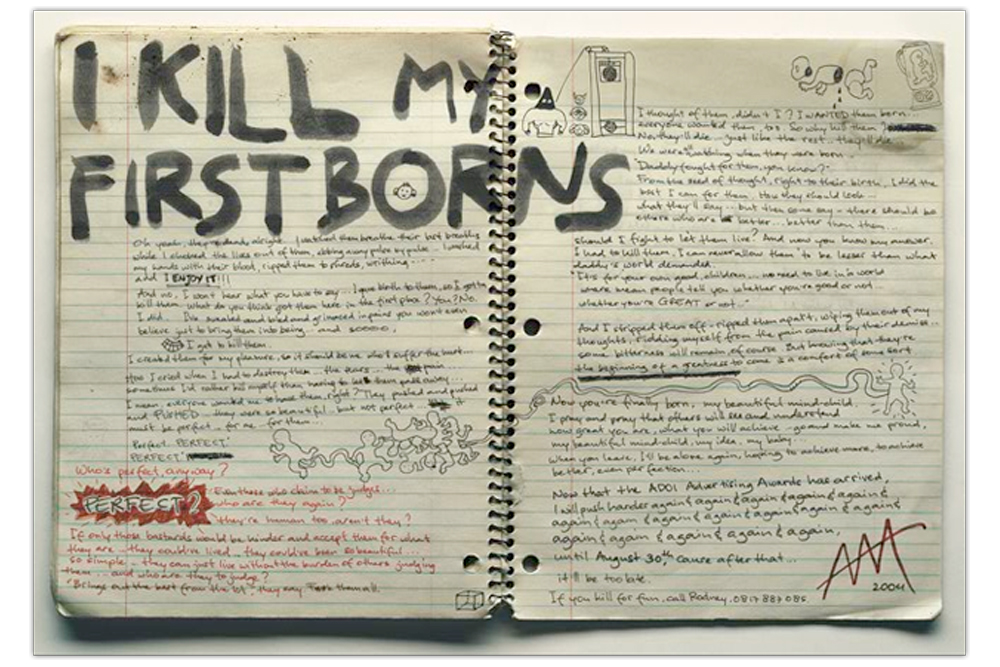 I KILL MY
FIRST BORNS
Oh yeah, they're dead, alright. I watched them breathe their last breaths
while I choked the lives out of them, ebbing away pulse by pulse... I washed
my hands with their blood, ripped them to shreds, writhing.....
and I ENJOY IT!!!
And no, I won't hear what you have to say... I gave birth to them, so I got to
kill them. What do you think got them here in the first place? You? No.
I did... I've sweated and bled and grimaced in pains you won't even
believe just to bring them into being... and sooooo,
I get to kill them.
I created them for my pleasure, so it should be me who'll suffer the hurt...
too. I cried when I had to destroy them... the tears... the pain
sometimes I'd rather kill myself than having to let them pass away...
I mean, everyone wanted me to have them, right? They pushed and pushed
and PUSHED... they were so beautiful... but not perfect... it
must be perfect... for me... for them...
Perfect. PERFECT.
PERFECT.
Who's perfect, anyway?
PERFECT?
Even those who claim to be judges...
who are they again?
They're human too, aren't they?
If only those bastards would be kinder and accept them for what
they are... they could've lived... they could've been so beautiful...
so simple... they can just live without the burden of others judging
them... and who are they to judge?
"Brings out the best from the lot", they say. them all.
I thought of them, didn't I? I WANTED them born...
everyone wanted them, too. So why kill them?
No, they'll die... just like the rest... they'll die.
We were watching when they were born...
"Daddy fought for them, you know?"
From the seed of thought, right to their birth... I did the
best I can for them. How they should look...
what they'll say... but then some say - there should be
others who are better... better than them...
should I fight to let them live? And now you know my answer.
I had to kill them, I can never allow them to be lesser than what
daddy's world demanded.
"It's for your own good, children... no need to live in a world
where mean people tell you whether you're good or not...
whether you're GREAT or not..."
And I stripped them off - ripped them apart, wiping them out of my
thoughts, ridding myself from the pain caused by their demise...
some bitterness will remain, of course. But knowing that they're
the beginning of a greatness to come is a comfort of some sort
Now you're finally born, my beautiful mind-child,
I pray and pray that others will see and understand
how great you are, what you will achieve - go and make me proud,
my beautiful mind-child, my idea, my baby...
When you leave, I'll be alone again, hoping to achieve more, to achieve
better, even perfection...
Now that the ADOI Advertising Awards has arrived,
I will push harder again & again & again & again & again &
again & again & again & again & again & again & again &
again & again & again & again & again,
until August 30th, cause after that...
it'll be too late.
If you kill for fun, call Rodney, 0817 887 085.
AAA
2004